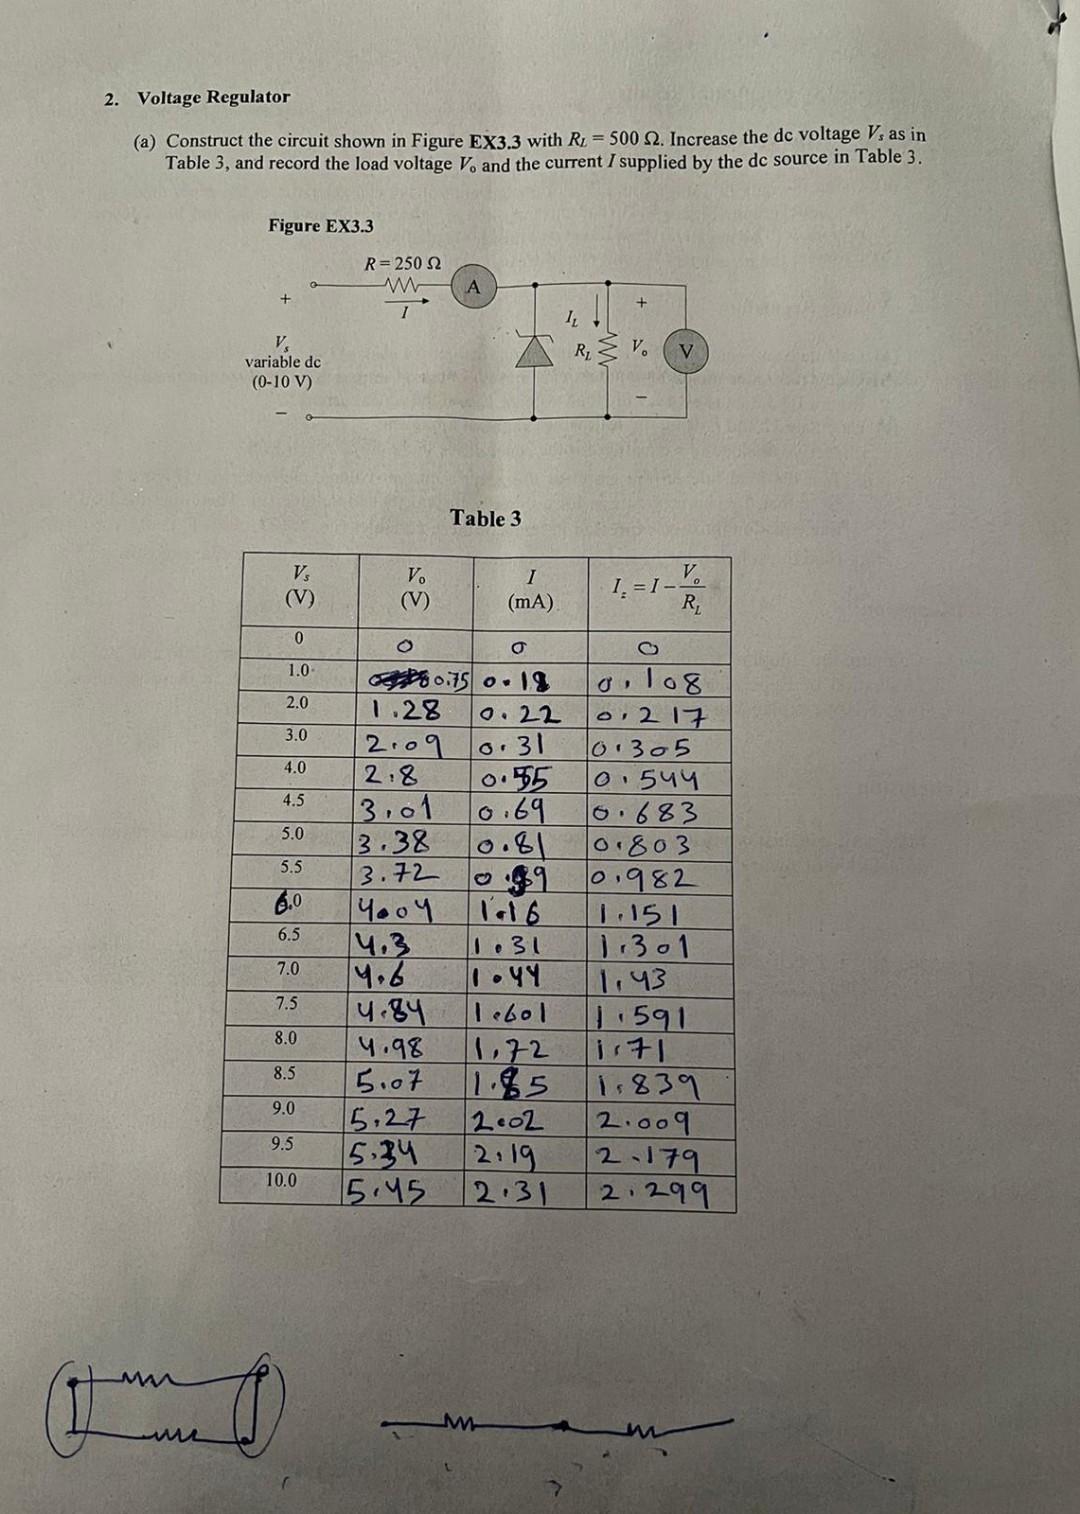 2. Voltage Regulator
(a) Construct the circuit shown in Figure EX3.3 with RL = 500 Ω. Increase the dc voltage Vs as in
Table 3, and record the load voltage Vo and the current I supplied by the dc source in Table 3.
Figure EX3.3
R = 250 Ω
A
I
+
Vs
variable dc
(0-10 V)
−
IL
RL
+
Vo
−
V
Table 3
Vs (V) Vo (V) I (mA) Iz = I − Vo/RL
0 0 0 0
1.0 0.75 0.18 0.108
2.0 1.28 0.22 0.217
3.0 2.09 0.31 0.305
4.0 2.8 0.55 0.544
4.5 3.01 0.69 0.683
5.0 3.38 0.81 0.803
5.5 3.72 0.99 0.982
6.0 4.04 1.16 1.151
6.5 4.3 1.31 1.301
7.0 4.6 1.44 1.43
7.5 4.84 1.601 1.591
8.0 4.98 1.72 1.71
8.5 5.07 1.85 1.839
9.0 5.27 2.02 2.009
9.5 5.34 2.19 2.179
10.0 5.45 2.31 2.299